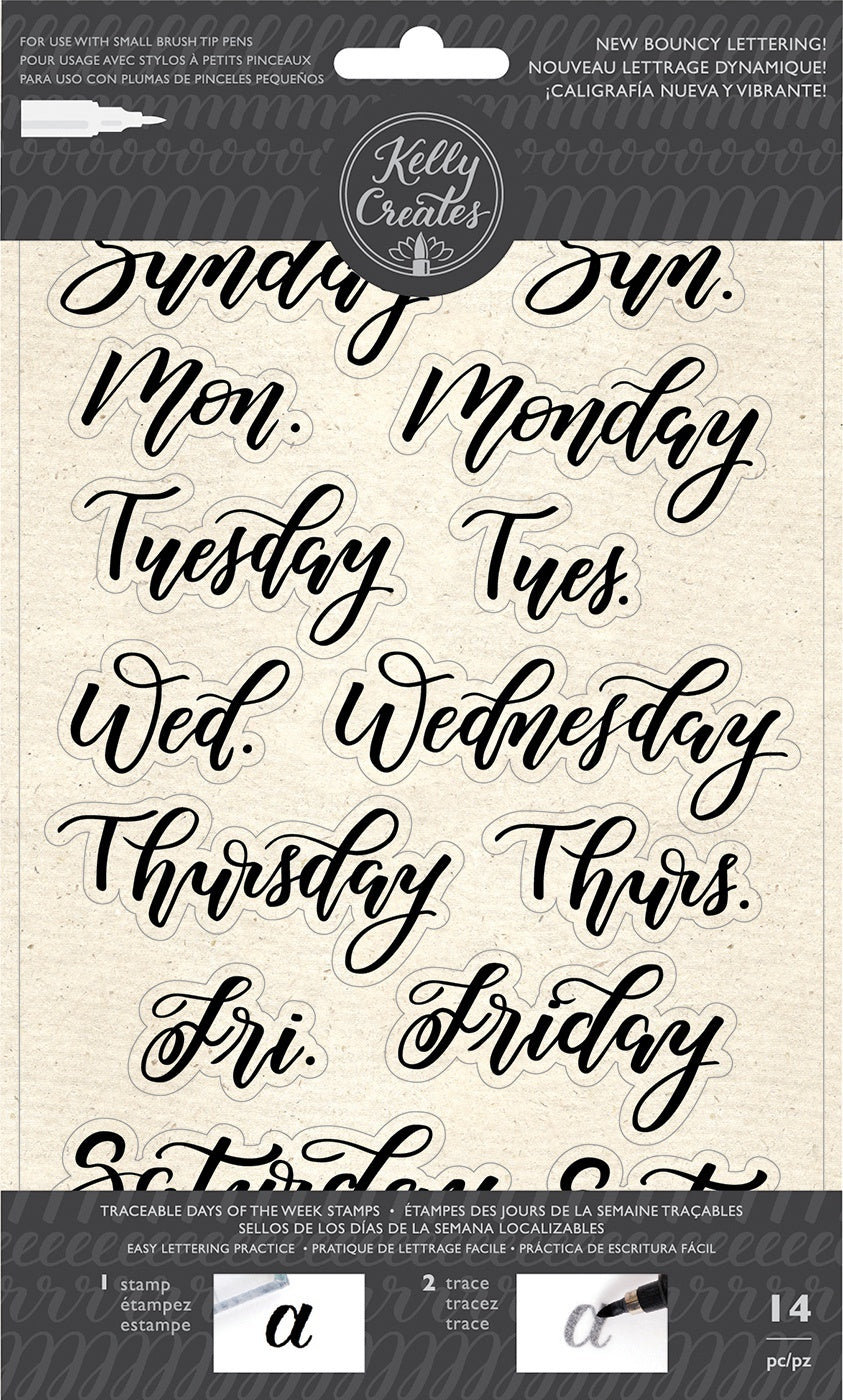 FOR USE WITH SMALL BRUSH TIP PENS
POUR USAGE AVEC STYLOS À PETITS PINCEAUX
PARA USO CON PLUMAS DE PINCELES PEQUEÑOS
NEW BOUNCY LETTERING!
NOUVEAU LETTRAGE DYNAMIQUE!
¡CALIGRAFÍA NUEVA Y VIBRANTE!
Kelly
Creates
Sunday Sun.
Mon. Monday
Tuesday Tues.
Wed. Wednesday
Thursday Thurs.
Fri. Friday
Saturday Sat
TRACEABLE DAYS OF THE WEEK STAMPS • ÉTAMPES DES JOURS DE LA SEMAINE TRAÇABLES
SELLOS DE LOS DÍAS DE LA SEMANA LOCALIZABLES
EASY LETTERING PRACTICE • PRATIQUE DE LETTRAGE FACILE • PRÁCTICA DE ESCRITURA FÁCIL
1 stamp
étampez
estampe
a
2 trace
tracez
trace
a
14
pc/pz